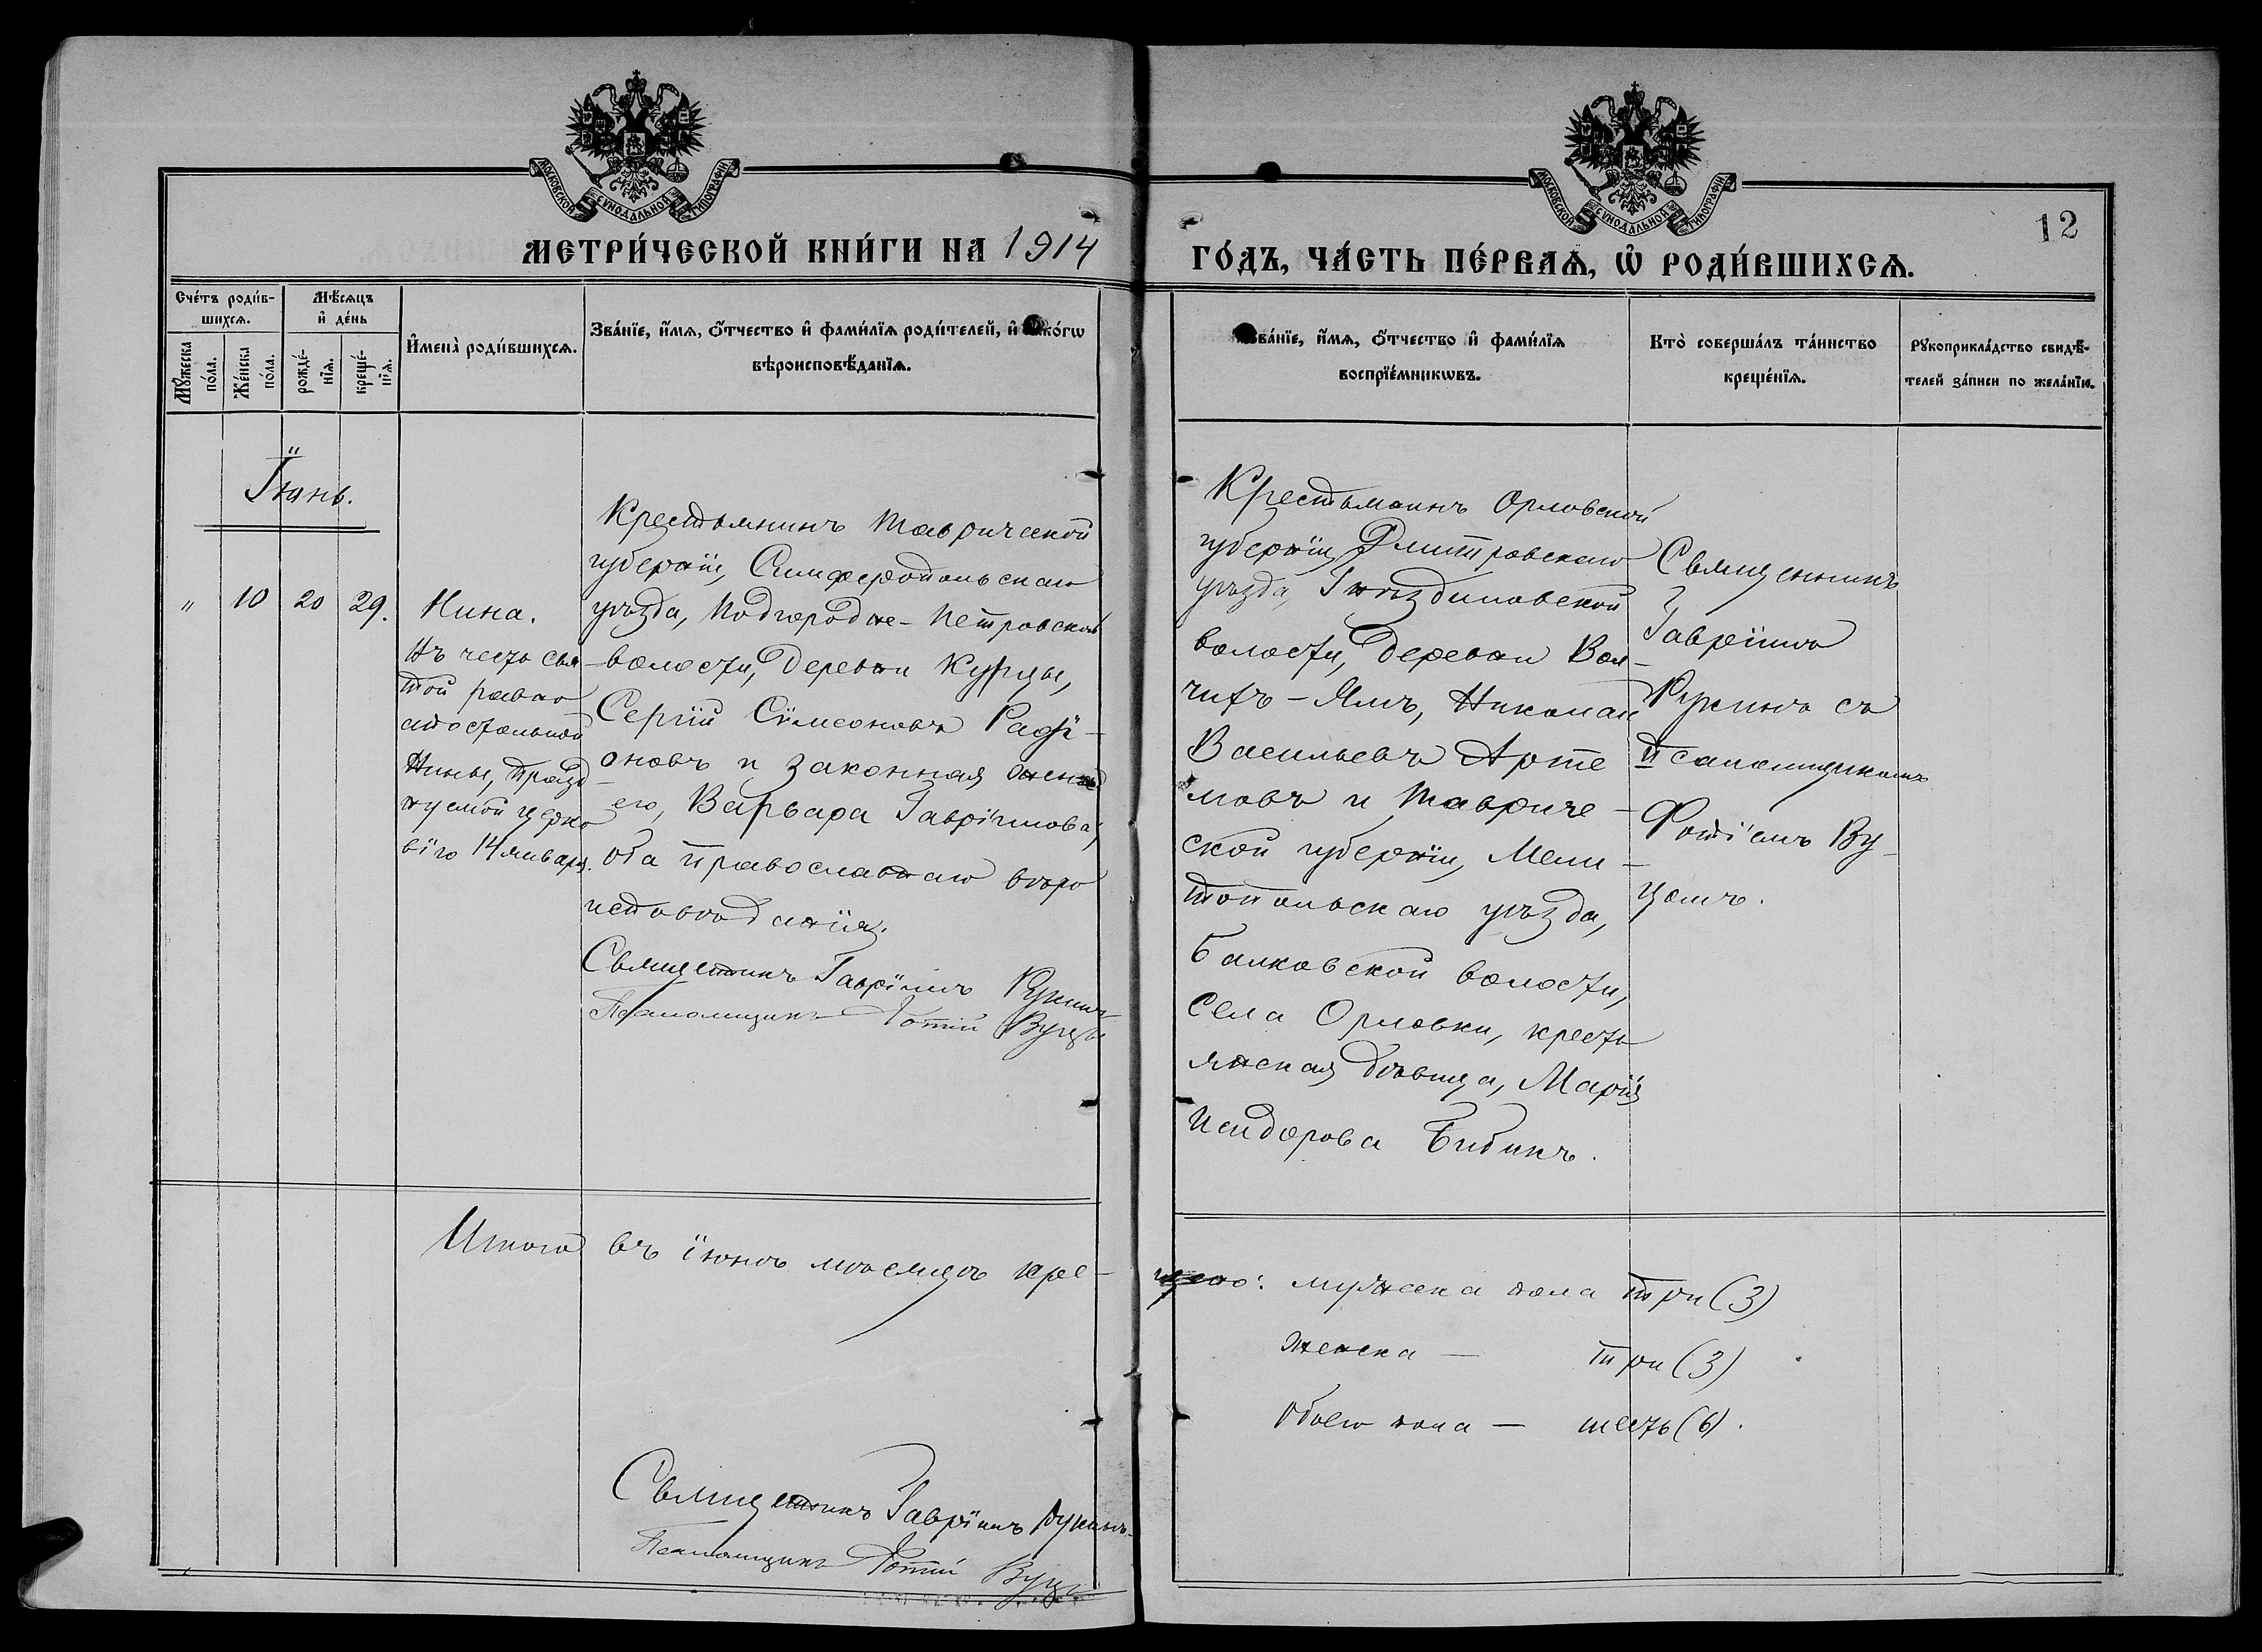 МОСКОВСКОЙ СѴНОДАЛЬНОЙ ТИПОГРАФІИ
МОСКОВСКОЙ СѴНОДАЛЬНОЙ ТИПОГРАФІИ
12
МЕТРИ́ЧЕСКОЙ КНИ́ГИ НА 1914
ГО́ДЪ, ЧА́СТЬ ПЕ́РВАѦ, Ѽ РОДИ́ВШИХСѦ.
Сче́тъ роди́в-
шихсѧ.
Мꙋ́жеска
по́ла.
Же́нска
по́ла.
Мѣ́сѧцъ
и҆ де́нь
рожде́-
нїѧ.
креще́-
нїѧ.
И҆мена̀ роди́вшихсѧ.
Зва́нїе, и҆́мѧ, ѻ҆́тчество и҆ фами́лїѧ роди́телей, и҆ како́гѡ
вѣроисповѣ́данїѧ.
Зва́нїе, и҆́мѧ, ѻ҆́тчество и҆ фами́лїѧ
воспрїе́мникѡвъ.
Кто̀ соверша́лъ та́инство
креще́нїѧ.
Рꙋкоприкла́дство свидѣ́-
телей за́писи по жела́нїю.
Іюнь.
" 10 20 29.
Нина.
Въ честь свя
той равно
апостольной
Нины, празд
нуемой церко
вію 14 января.
Крестьянинъ Таврической
губерніи, Симферопольскаго
уѣзда, Подгородне-Петровской
волости, деревни Курцы,
Сергій Сѵмеоновъ Радї-
оновъ и законная жена
его, Варвара Гавріилова,
оба православнаго вѣро
исповѣданія.
Священникъ Гавріилъ Рукинъ
Псаломщикъ Фотій Вуцъ
Крестьянинъ Орловской
губерніи, Дмитровскаго
уѣзда, Гнѣздиловской
волости, деревни Вол-
чихъ-Ямъ, Николай
Васильевъ Арте
мовъ и Тавриче-
ской губерніи, Мели-
топольскаго уѣзда,
Балковской волости,
села Орловки, кресть
янская дѣвица, Марія
Исидорова Бибикъ.
Священникъ
Гавріилъ
Рукинъ съ
псаломщикомъ
Фотіемъ Ву-
цомъ.
Итого въ іюнѣ мѣсяцѣ кре-
щено: мужеска пола три (3)
женска — три (3)
Обоего пола — шесть (6).
Священникъ Гавріилъ Рукинъ
Псаломщикъ Фотій Вуцъ